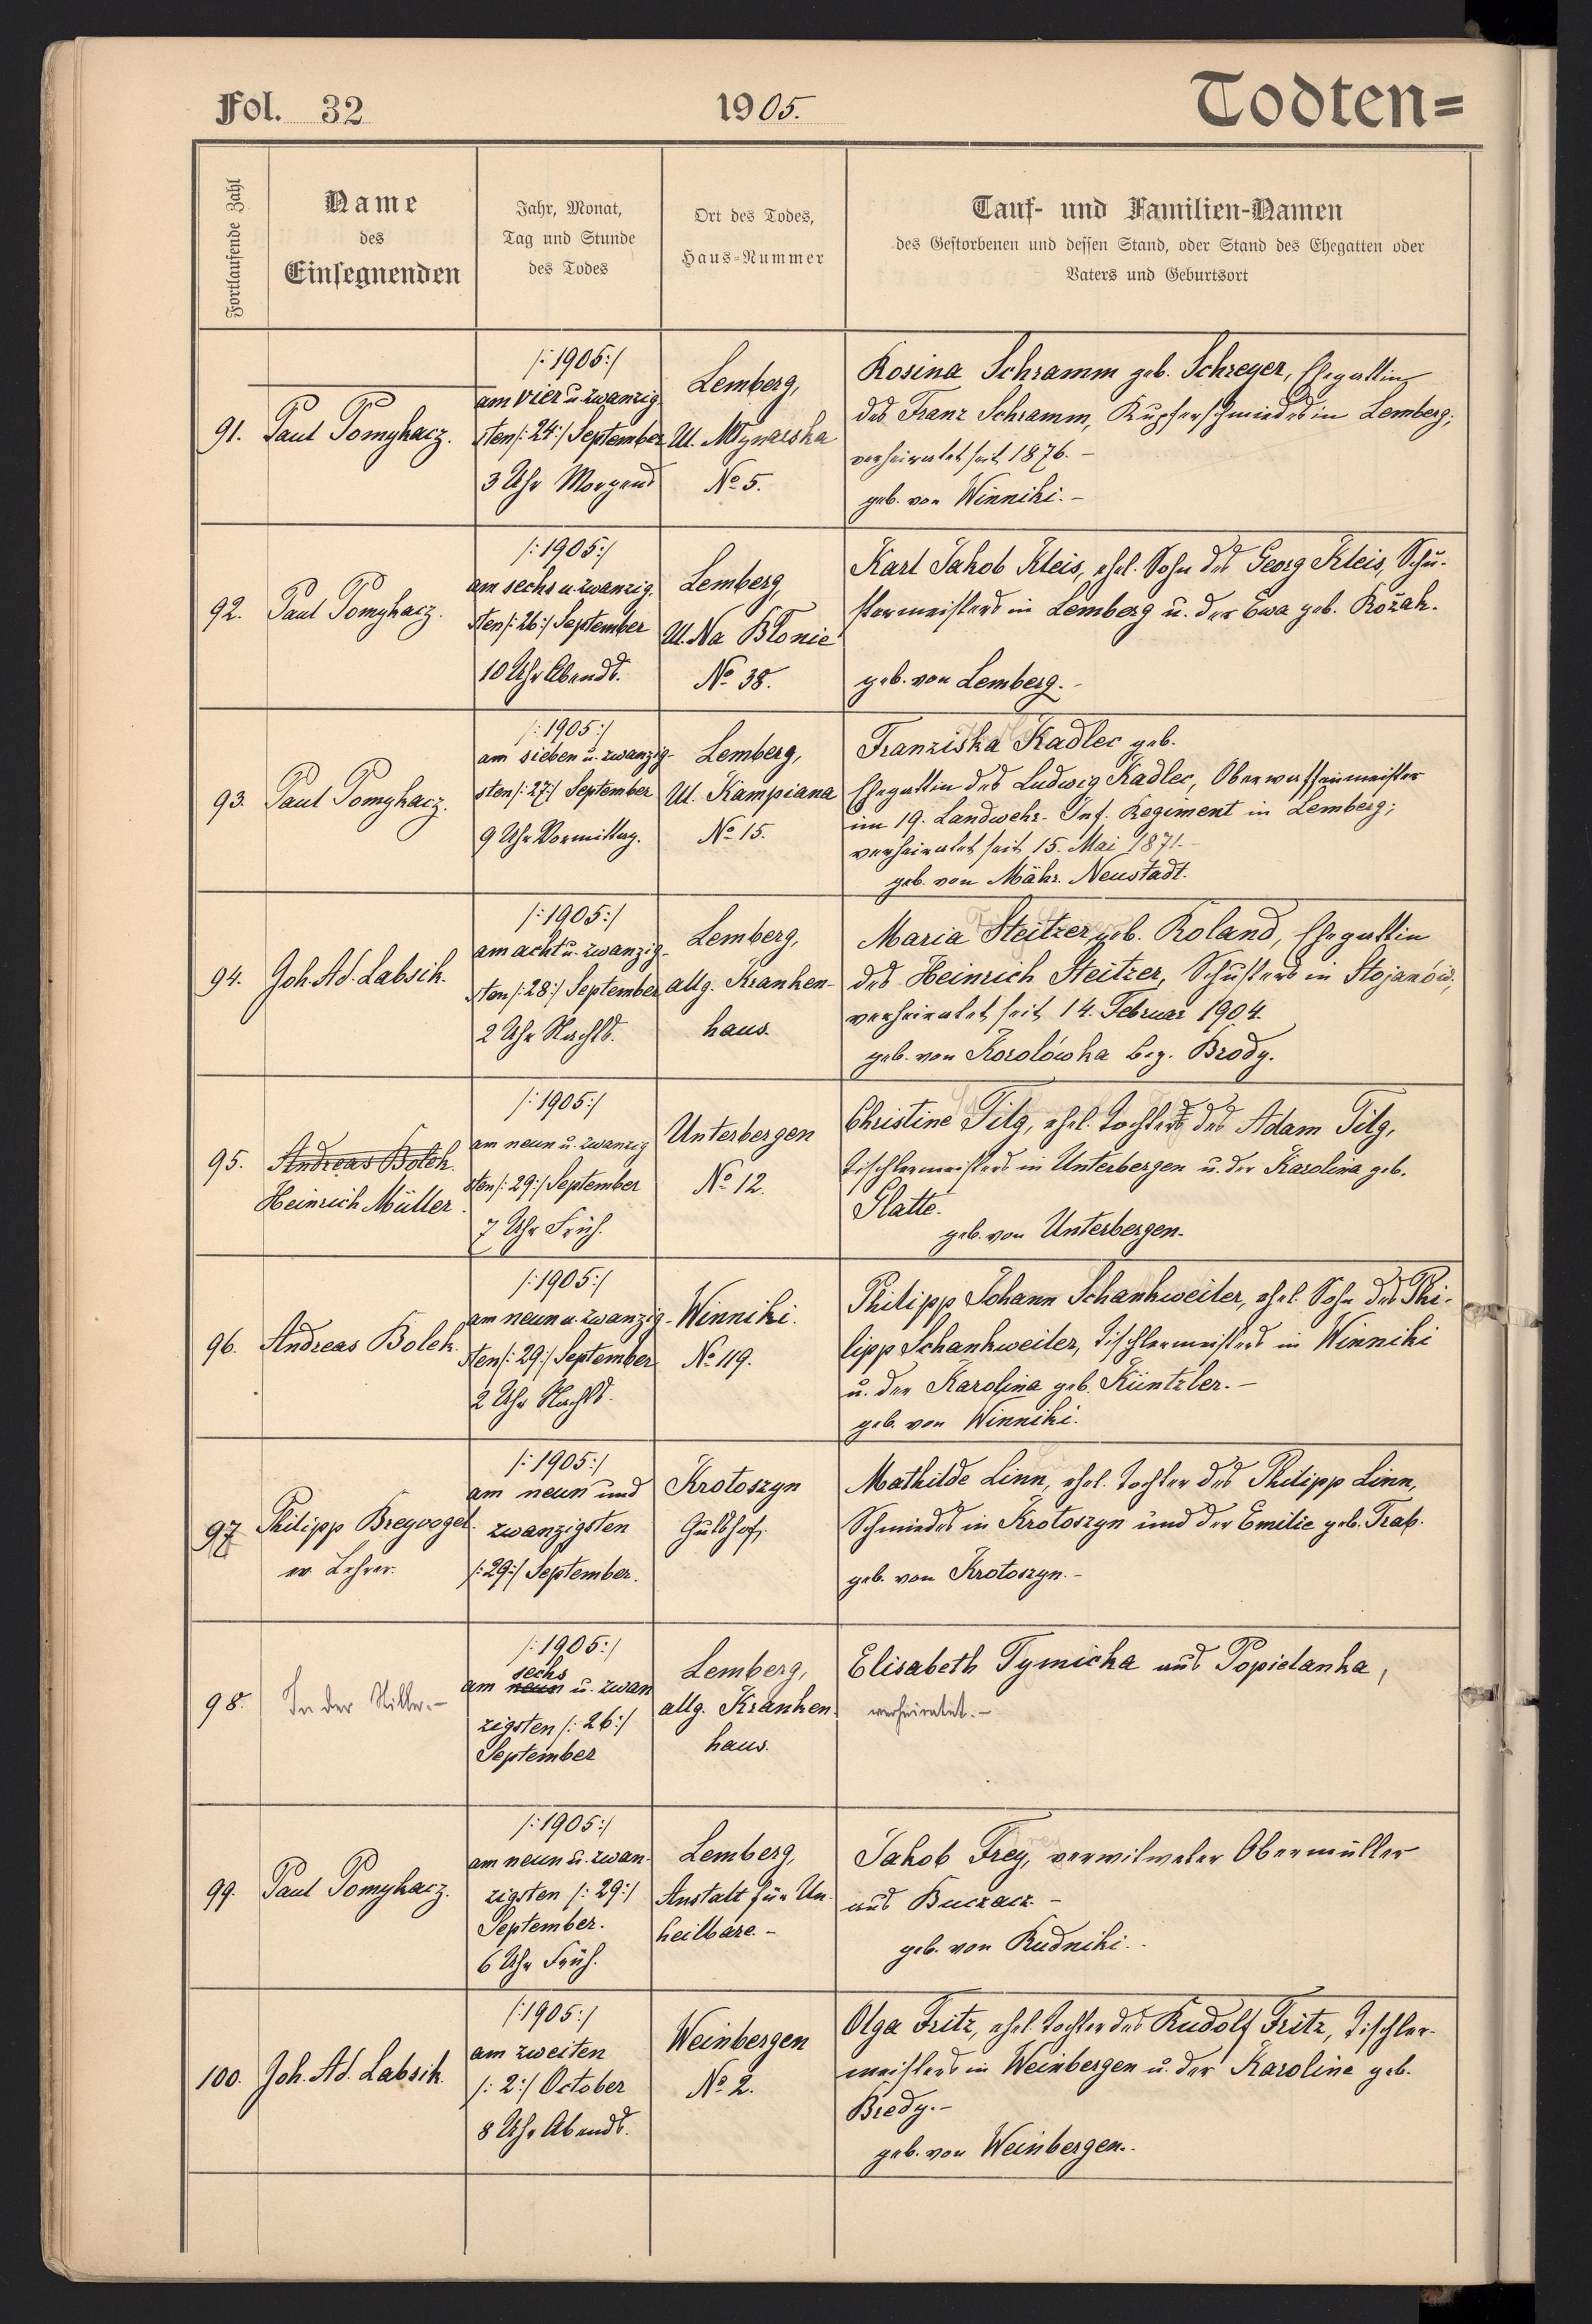 Fol. 32
1905.
Todten=
Fortlaufende Zahl
Name
des
Einsegnenden
Jahr, Monat,
Tag und Stunde
des Todes
Ort des Todes,
Haus-Nummer
Tauf- und Familien-Namen
des Gestorbenen und dessen Stand, oder Stand des Ehegatten oder
Vaters und Geburtsort
91.
Paul Pomykacz.
/:1905:/
am vier u. zwanzig
sten /:24:/ September
3 Uhr Morgens
Lemberg,
Ul. Młynarska
No 5.
Rosina Schramm geb. Schreyer, Ehegattin
des Franz Schramm, Kupferschmiedes in Lemberg;
verheiratet seit 1876. –
geb. von Winniki. –
92.
Paul Pomykacz.
/:1905:/
am sechs u. zwanzig.
sten /:26:/ September
10 Uhr Abends.
Lemberg,
Ul. Na Błonie
No 38.
Karl Jakob Kleis, ehel. Sohn des Georg Kleis, Schu-
stermeisters in Lemberg u. der Ewa geb. Kožak.
geb. von Lemberg. –
93.
Paul Pomykacz.
/:1905:/
am sieben u. zwanzig-
sten /:27:/ September
9 Uhr Vormittag.
Lemberg,
Ul. Kampiana
No 15.
Franziska Kadlec geb.
Ehegattin des Ludwig Kadlec, Oberwaffenmeister
im 19. Landwehr-Inf. Regiment in Lemberg;
verheiratet seit 15. Mai 1871. –
geb. von Mähr. Neustadt.
94.
Joh. Ad. Labsik.
/:1905:/
am acht u. zwanzig-
sten /:28:/ September
2 Uhr Nachts.
Lemberg,
allg. Kranken-
haus.
Maria Steitzer geb. Roland, Ehegattin
des Heinrich Steitzer, Schusters in Stojanów,
verheiratet seit 14. Februar 1904.
geb. von Korolówka bez. Brody.
95.
Andreas Bolek.
Heinrich Müller.
/:1905:/
am neun u. zwanzig
sten /:29:/ September
7 Uhr Früh.
Unterbergen
No 12.
Christine Tilg, ehel. Tochter des Adam Tilg,
Tischlermeisters in Unterbergen u. der Karolina geb.
Glatte.
geb. von Unterbergen.
96.
Andreas Bolek.
/:1905:/
am neun u. zwanzig-
sten /:29:/ September
2 Uhr Nachts.
Winniki.
No 119.
Philipp Johann Schankweiler, ehel. Sohn des Phi-
lipp Schankweiler, Tischlermeisters in Winniki
u. der Karolina geb. Küntzler. –
geb. von Winniki.
97
Philipp Breyvogel
ev. Lehrer.
/:1905:/
am neun und
zwanzigsten
/:29:/ September.
Krotoszyn
Gutshof,
Mathilde Linn, ehel. Tochter des Philipp Linn,
Schmiedes in Krotoszyn und der Emilie geb. Trab.
geb. von Krotoszyn. –
98.
In der Stille. –
/:1905:/
sechs
am neun u. zwan
zigsten /:26:/
September
Lemberg,
allg. Kranken-
haus.
Elisabeth Tymicka aus Popielanka,
verheiratet. –
99.
Paul Pomykacz.
/:1905:/
am neun u. zwan-
zigsten /:29:/
September.
6 Uhr Früh.
Lemberg,
Anstalt für Un-
heilbare. –
Jakob Frey, verwitweter Obermüller
aus Buczacz. –
geb. von Rudniki. .
100.
Joh. Ad. Labsik.
/:1905:/
am zweiten
/:2:/ October
8 Uhr Abends.
Weinbergen
No 2.
Olga Fritz, ehel. Tochter des Rudolf Fritz, Tischler-
meisters in Weinbergen u. der Karoline geb.
Bredy. –
geb. von Weinbergen. .